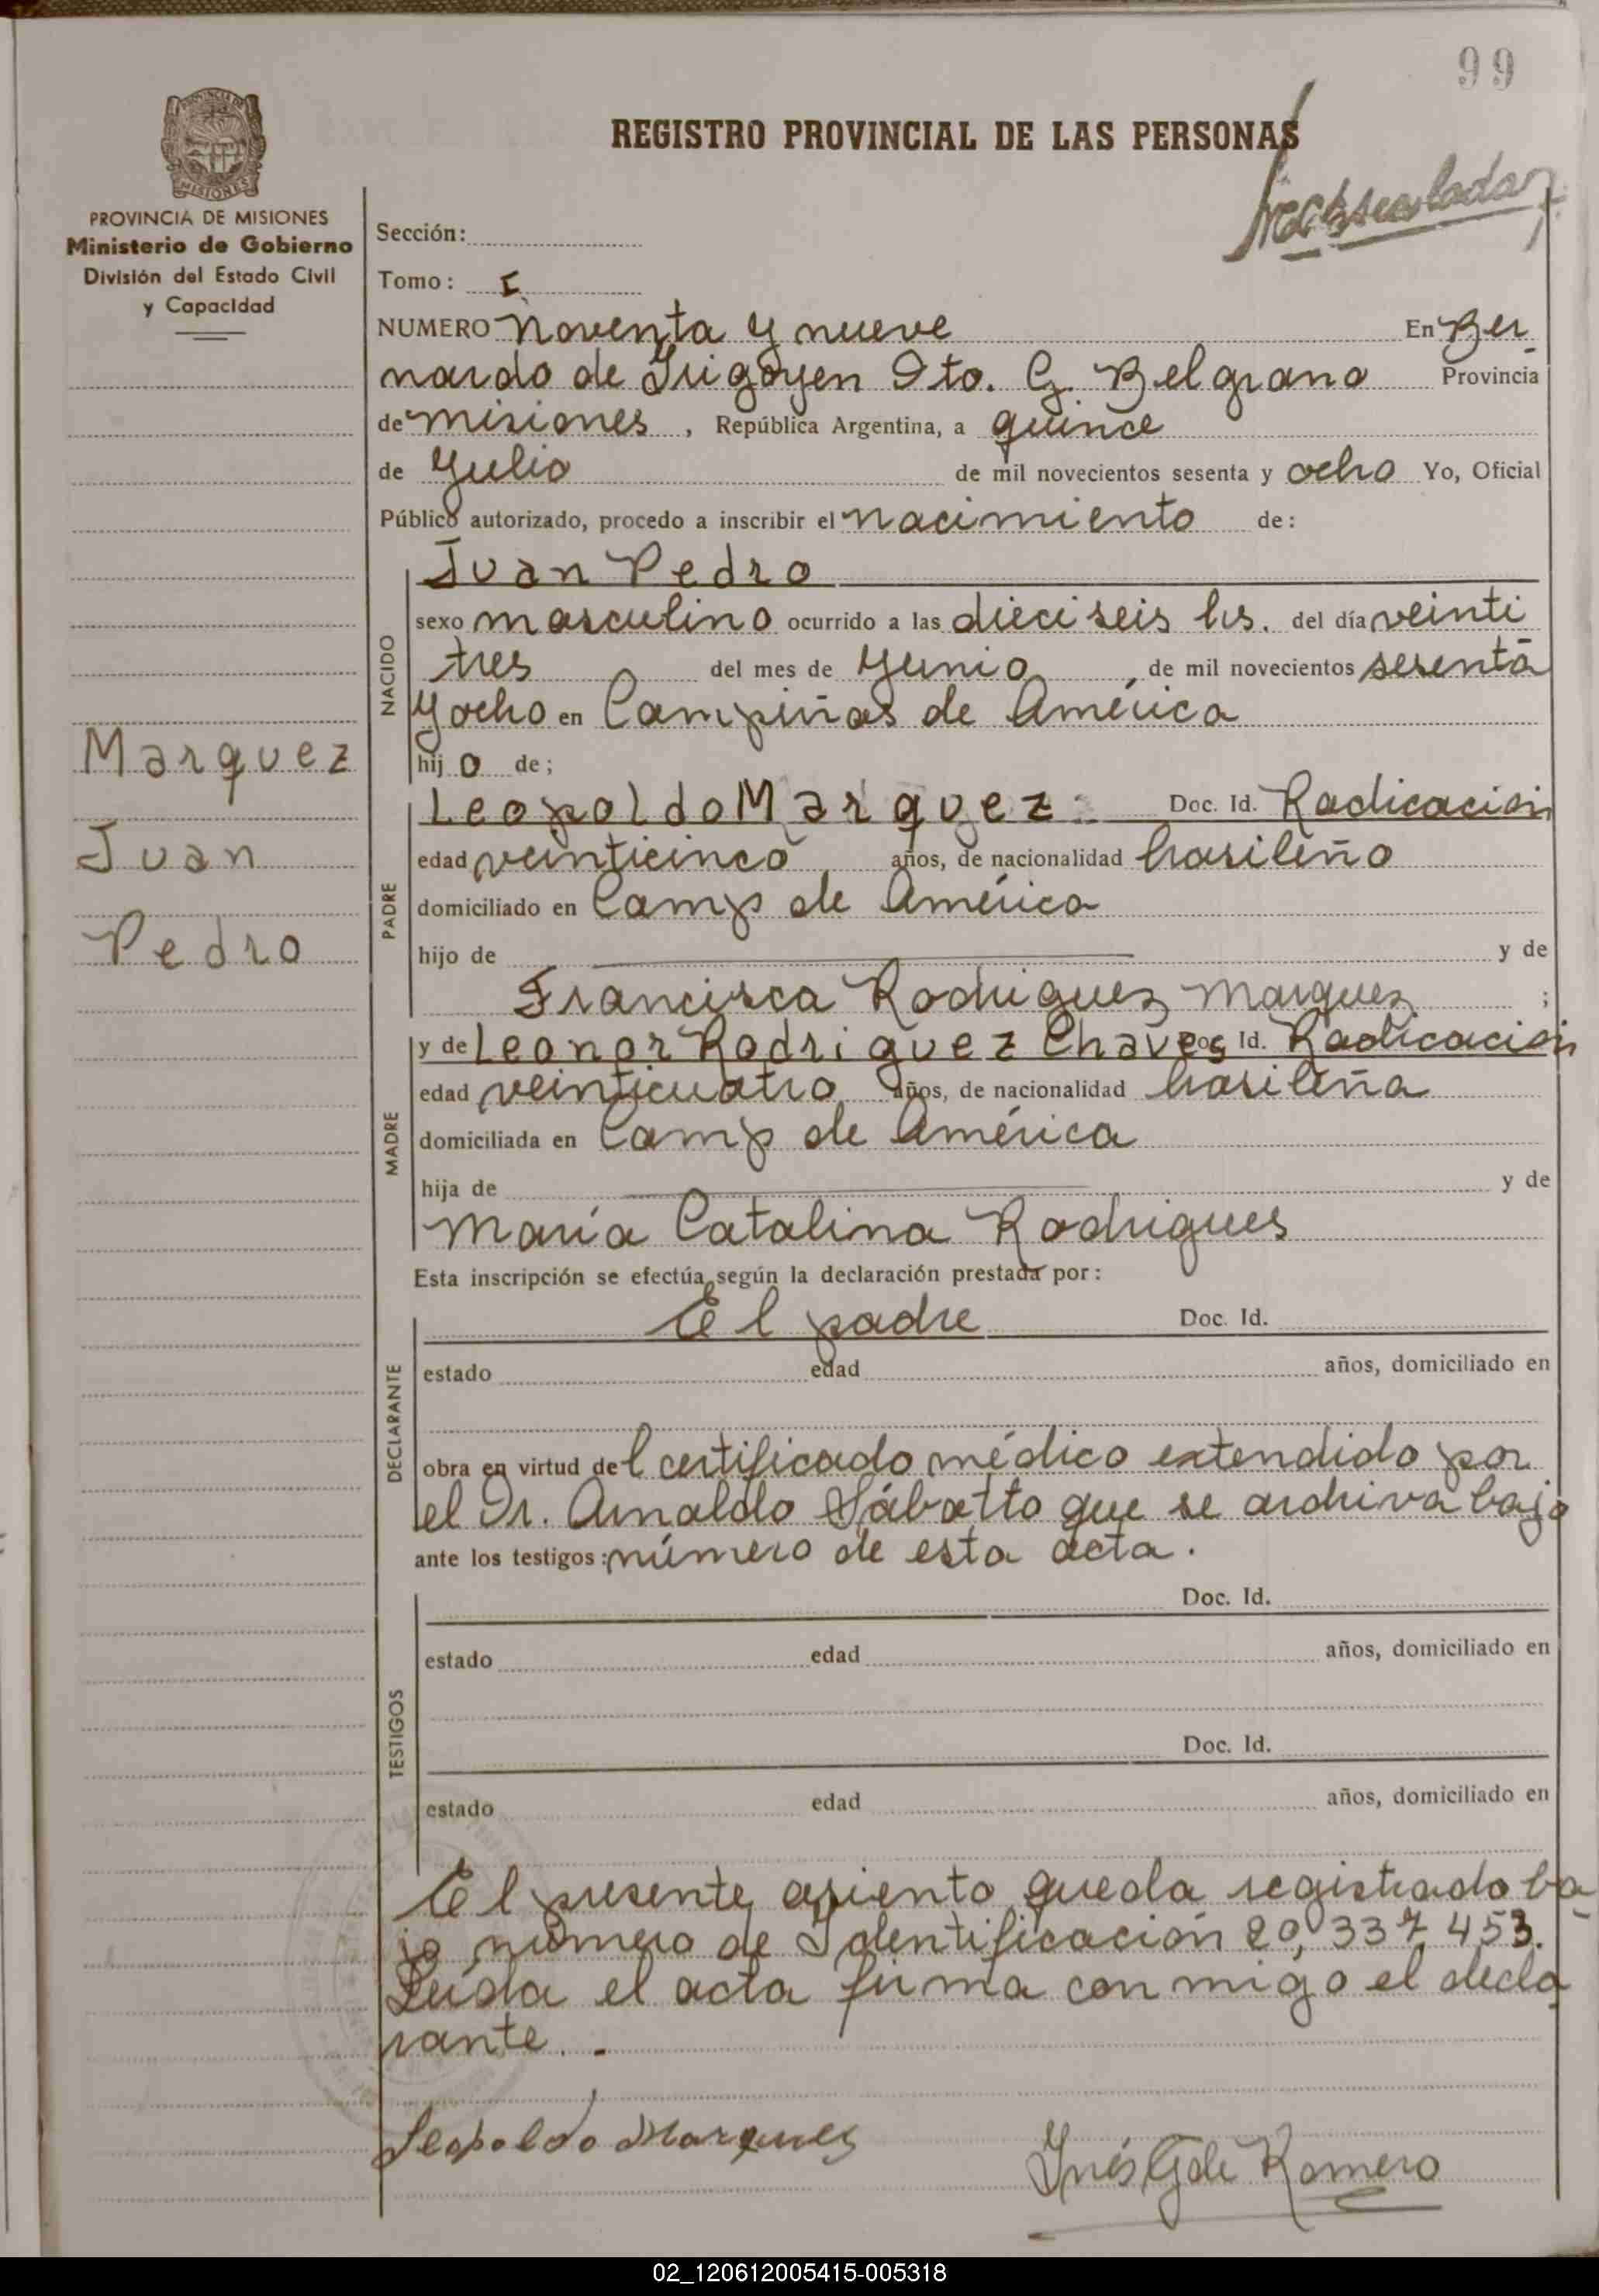 99
REGISTRO PROVINCIAL DE LAS PERSONAS
PROVINCIA DE MISIONES
Ministerio de Gobierno
División del Estado Civil
y Capacidad
Sección:
Tomo: I
NUMERO Noventa y nueve En Ber
nardo de Irigoyen Dto. G. Belgrano Provincia
de misiones, República Argentina, a quince
de Julio de mil novecientos sesenta y ocho Yo, Oficial
Público autorizado, procedo a inscribir el nacimiento de:
NACIDO
Juan Pedro
sexo masculino ocurrido a las dieciseis hs. del día veinti
tres del mes de Junio, de mil novecientos sesenta
y ocho en Campiñas de América
hijo de;
Marquez
Juan
Pedro
PADRE
Leopoldo Marquez Doc. Id. Radicación
edad veinticinco años, de nacionalidad brasileño
domiciliado en Camp de América
hijo de y de
Francisca Rodriguez Marquez ;
MADRE
y de Leonor Rodriguez Chaves Doc. Id. Radicación
edad veinticuatro años, de nacionalidad brasileña
domiciliada en Camp de América
hija de y de
María Catalina Rodrigues
Esta inscripción se efectúa según la declaración prestada por:
DECLARANTE
El padre Doc. Id.
estado edad años, domiciliado en
obra en virtud del certificado médico extendido por
el Dr. Arnaldo Sábatto que se archiva bajo
ante los testigos: número de esta acta.
TESTIGOS
Doc. Id.
estado edad años, domiciliado en
Doc. Id.
estado edad años, domiciliado en
El presente asiento queda registrado ba
jo número de Identificación 20,337453.
Leída el acta firma conmigo el decla
rante.
Leopoldo Marques
Inés G de Romero
02_120612005415-005318